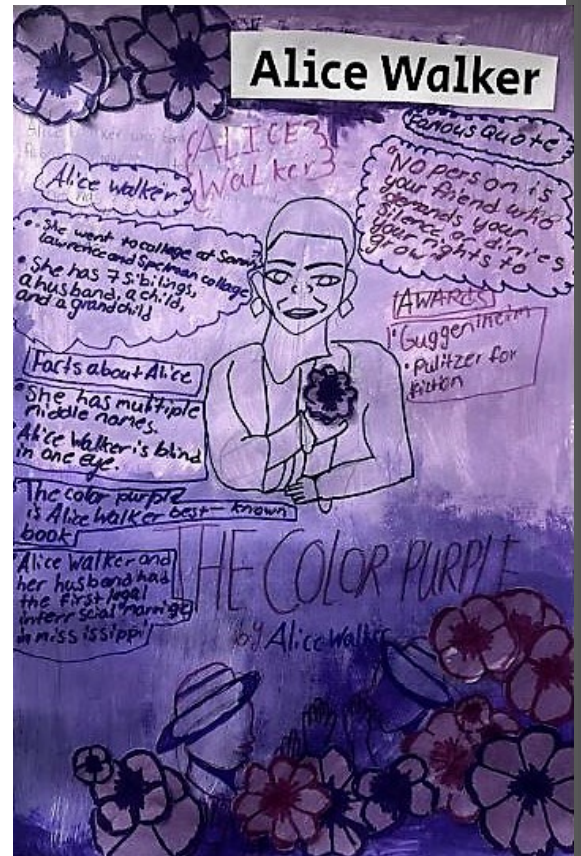 Alice Walker
Famous Quote
"No person is
your friend who
demands your
silence or dinies
your rights to
grow"
ALICE
Walker
Alice walker
• She went to collage at Sarah
lawrence and Spelman collage
• She has 7 sibilings,
a husband, a child,
and a grandchild
AWARDS
• Guggenheim
• Pulitzer for
fiction
Facts about Alice
• She has multiple
middle names.
• Alice Walker is blind
in one eye.
The color purple
is Alice Walker best-known
book
Alice Walker and
her husband had
the first legal
interr scial marrige
in miss issippi
THE COLOR PURPLE
by Alice Walker